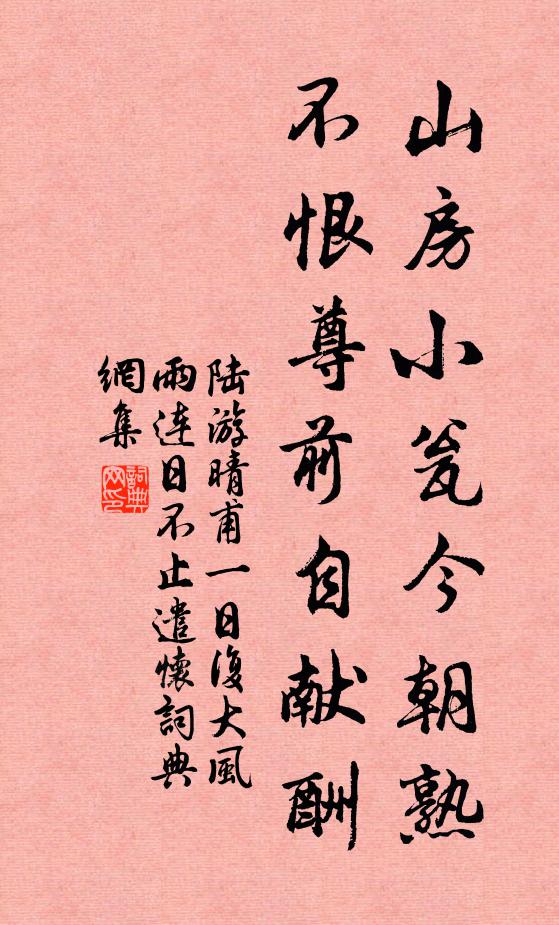 山房小瓮今朝熟
不恨尊前自献酬
陆游晴甫一日復大風
雨连日不止遣懷詞典
網集
詞典
网印